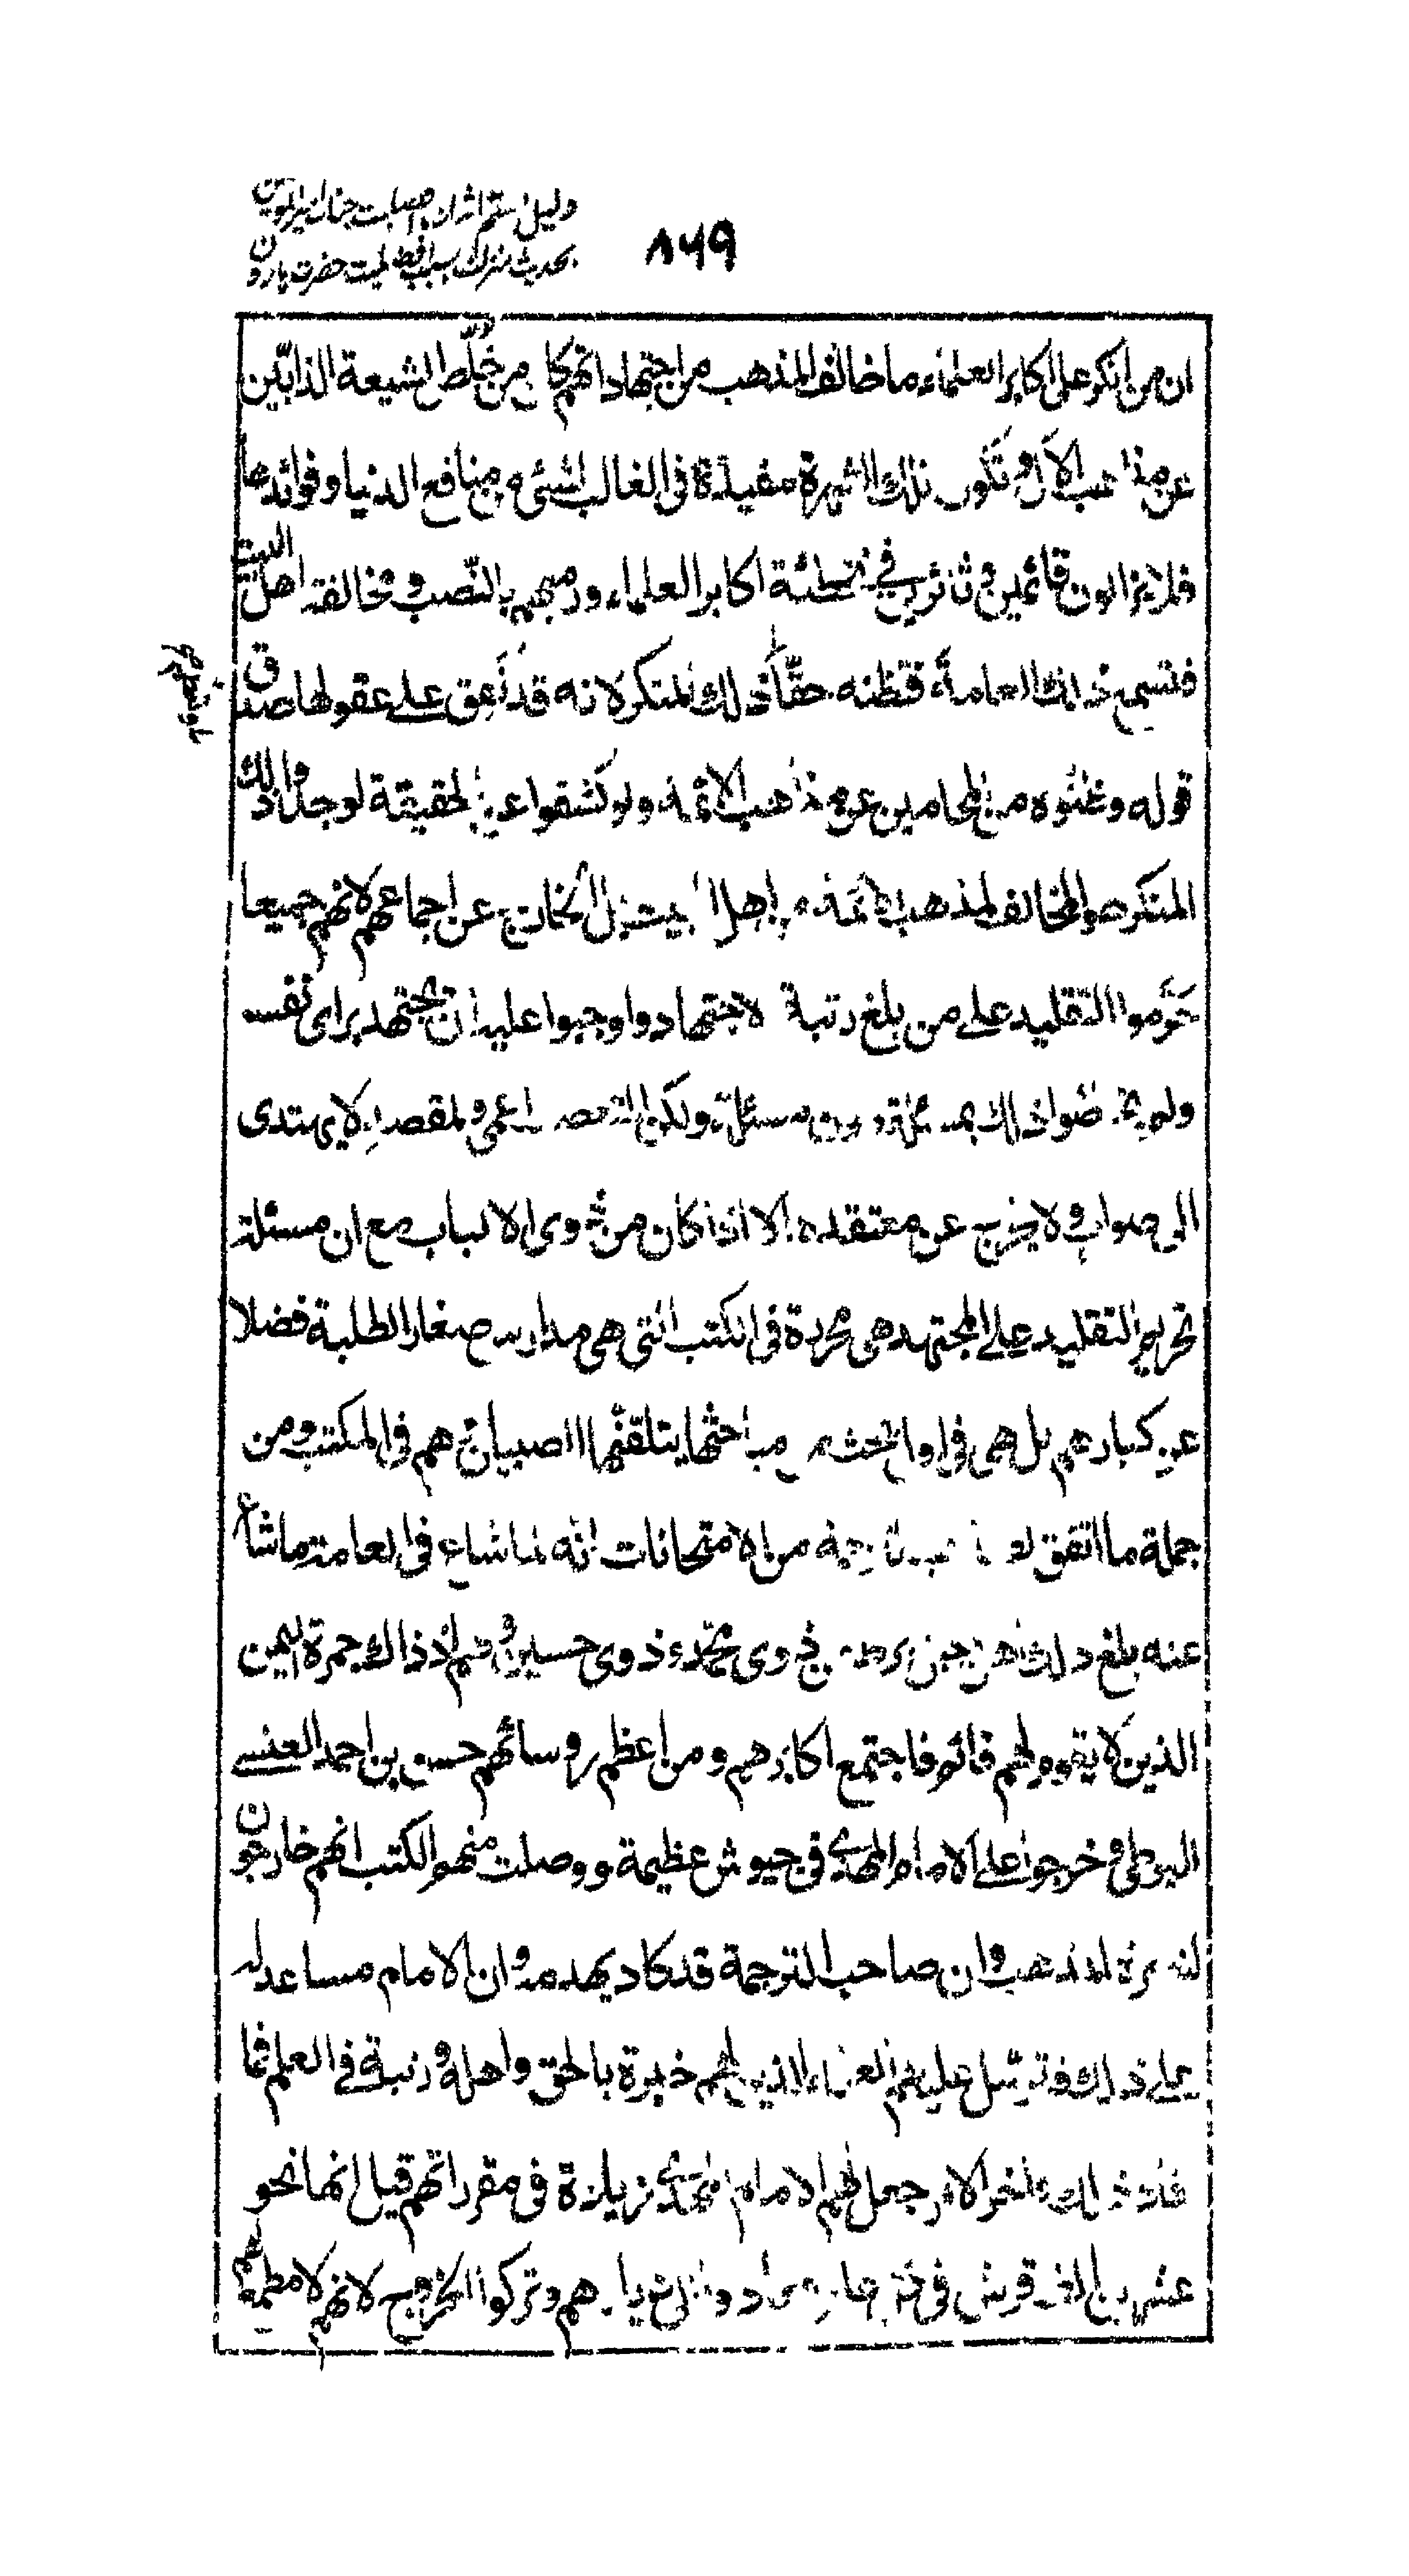 دلیل ششم از اثبات امامت جناب امیرالمومنین
بحدیث منزلت بسبب افضلیت حضرت هارون
٨٦٩
ان من انكر على اكابر العلماء ما خالف المذهب من اجتهاداتهم كان من خُلَّص الشيعة الذابّين
عن مذاهب الآل وتكون تلك الشهرة مفيدة فى الغالب لشئ من منافع الدنيا وفوائدها
فلا يزالون قائمين وثائرين في تخطئة اكابر العلماء ورميهم بالنّصب ومخالفة اهل البيت
فتسمع ذلك العامة فتظنه حقّا ذلك المنكر لانه قد نَفَق على عقولها صدق
قوله وظنّوه من المحامين عن مذاهب الائمة ولو كشفوا عن الحقيقة لوجدوا ذلك
المنكر هو المخالف لمذهب الائمة من اهل البيت بل الخارج عن اجماعهم لانهم جميعا
حَرَّموا التقليد على من بلغ رتبة الاجتهاد واوجبوا عليه ان يجتهد براى نفسه
ولم يخصوا ذلك بمسئلة دون مسئلة ولكن المتعصب اعمى والمقصر لا يهتدى
الى صواب ولا يخرج عن معتقده الا اذا كان من ذوى الالباب مع ان مسئلة
تحريم التقليد على المجتهد هى محررة فى الكتب التى هى مدارس صغار الطلبة فضلا
عن كبارهم بل هى فى اوائل بحث من مباحثها يتلقنها الصبيان وهم فى المكتب ومن
جملة ما اتفق لصاحب الترجمة من الامتحانات انه لما شاع فى العامة ما شاع
عنه بلغ ذلك اهل جبل برط من ذوى محمد وذوى حسين وهم اذ ذاك جمرة اليمن
الذين لا يقوم لهم قائم فاجتمع اكابرهم ومن اعظم روسائهم حسن بن احمد العنسى
البرطى وخرجوا على الامام المهدى فى جيوش عظيمة ووصلت منهم الكتب انهم خارجون
لنصرة المذهب وان صاحب الترجمة قد كاد يهدمه وان الامام مساعد له
على ذلك فترسّل عليهم العلماء الذين لهم خبرة بالحق واهله ورتبة فى العلم فما
افاد ذلك وآخر الامر جعل لهم الامام المهدى زيادة فى مقرراتهم قيل انها نحو
عشرين الف قرش فى كل عام فعادوا الى ديارهم وتركوا الخروج لانهم لا مطمع لهم